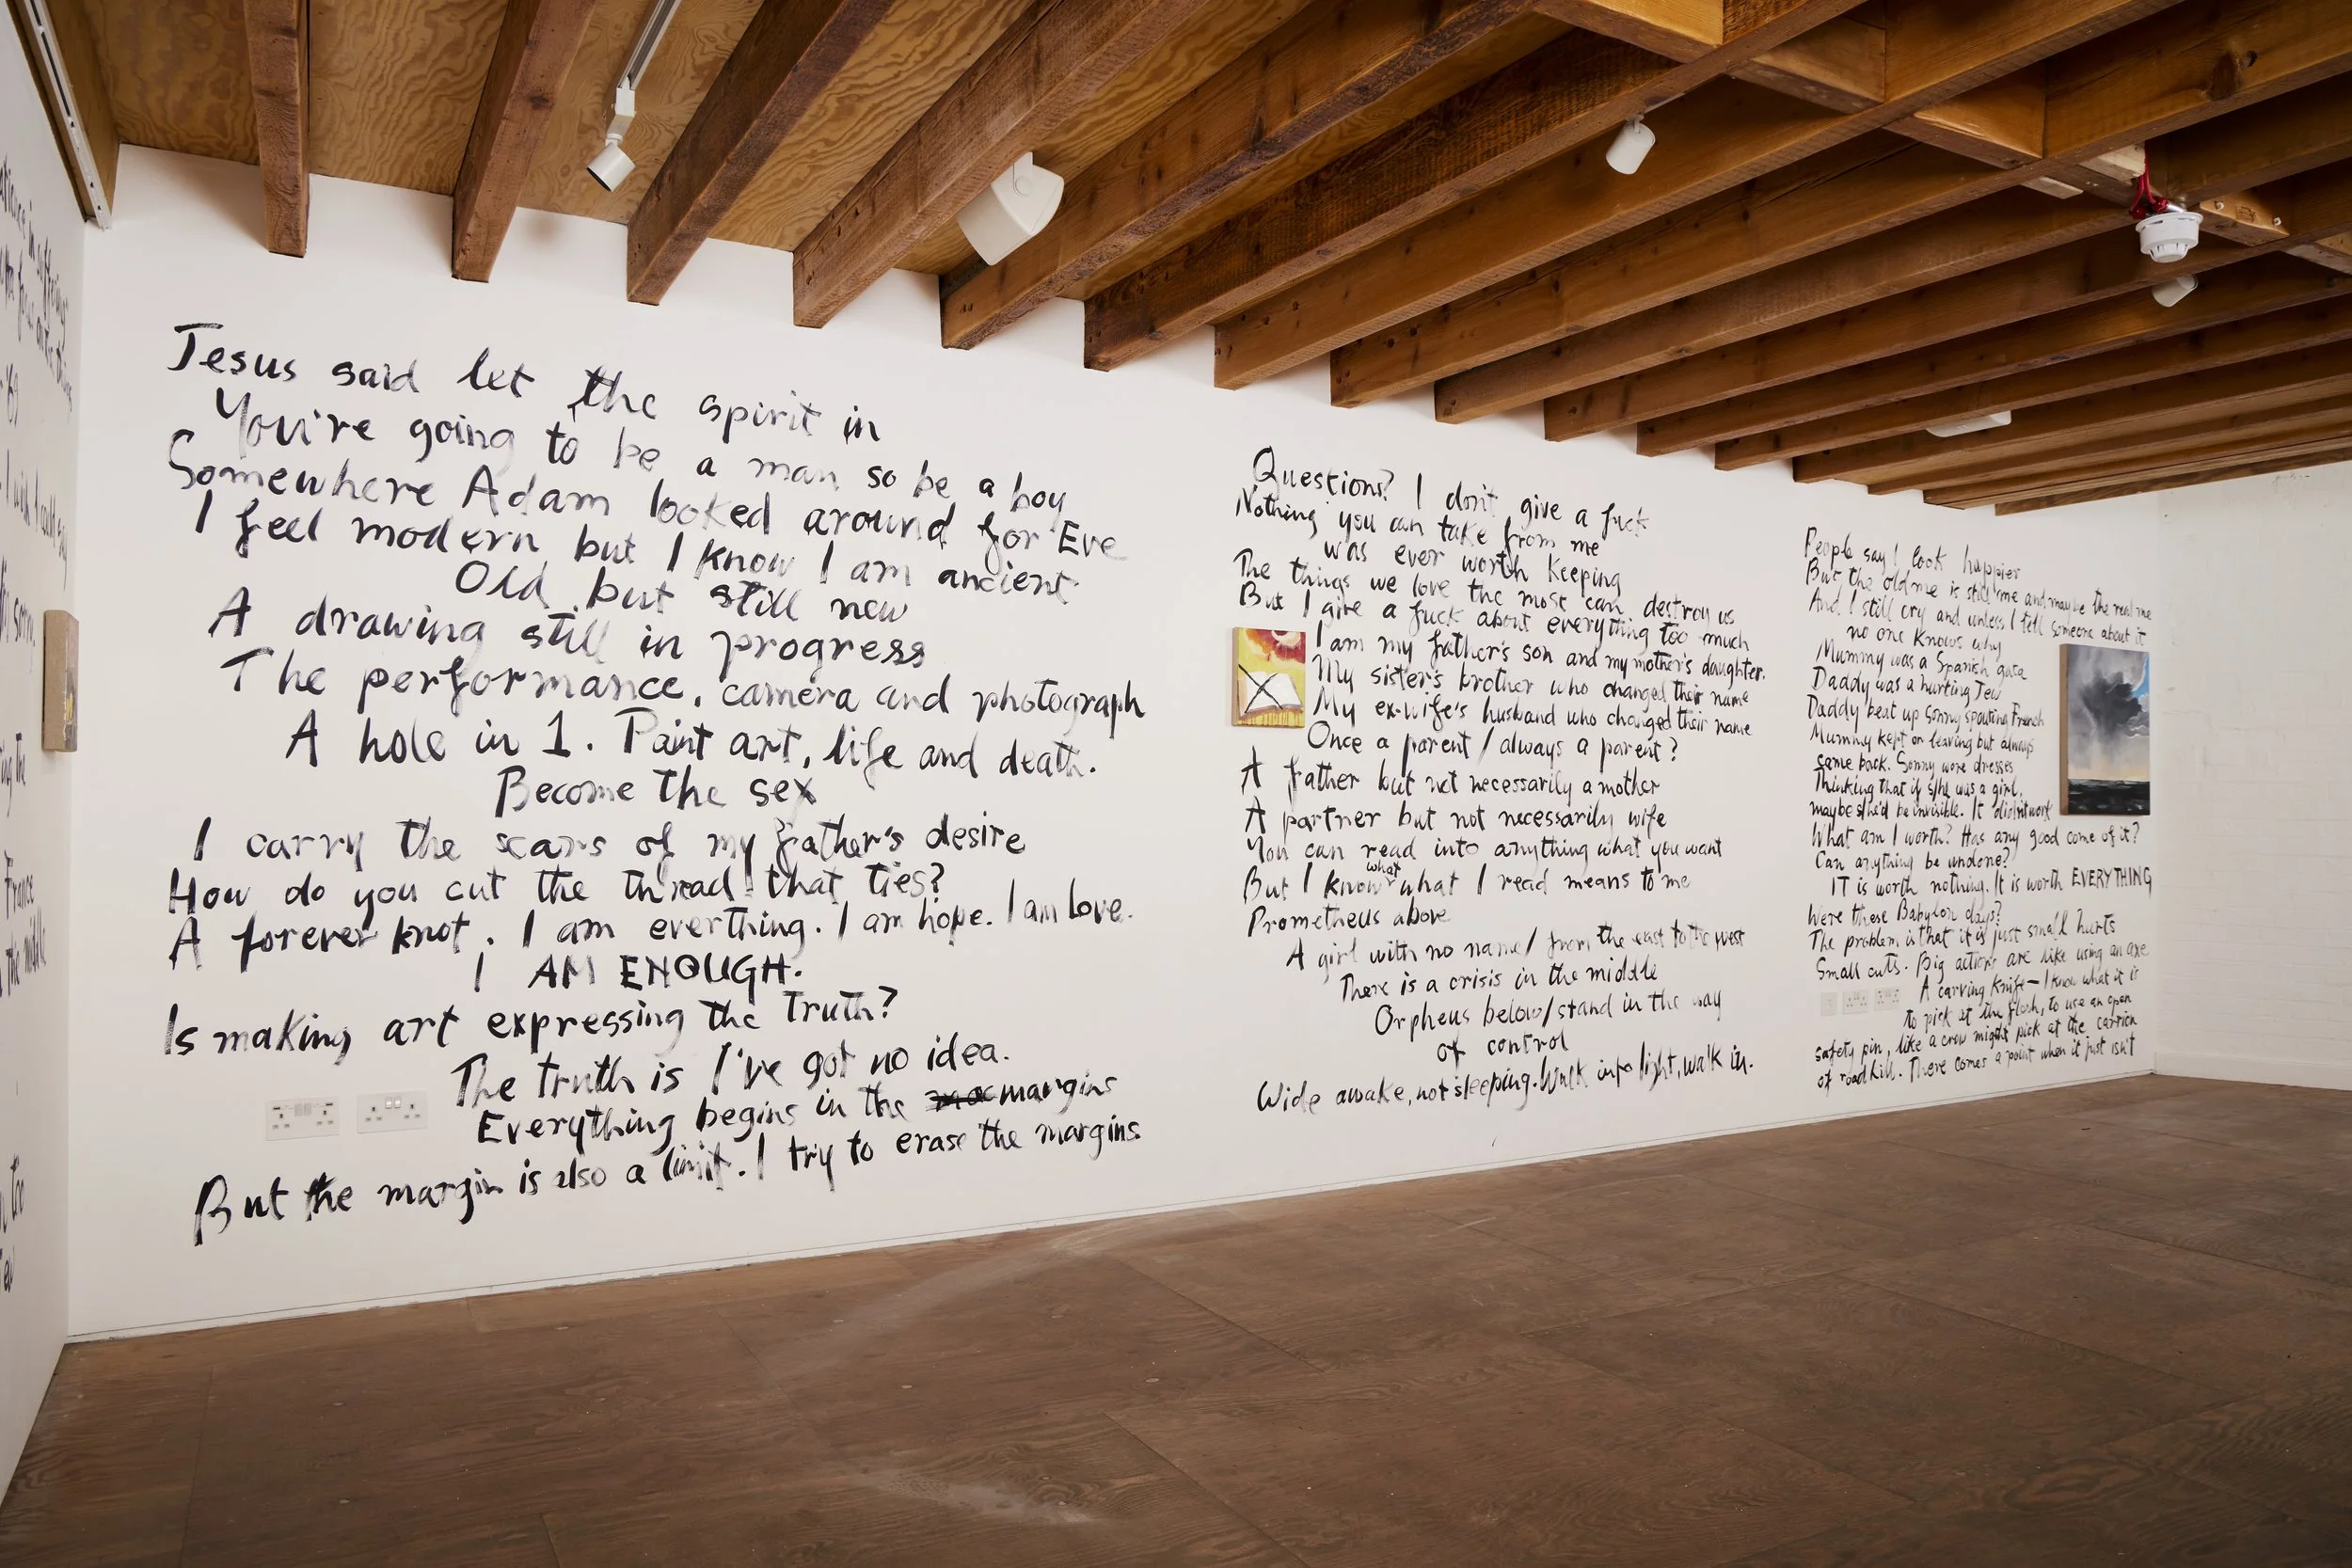 Jesus said let the spirit in
You're going to be a man so be a boy
Somewhere Adam looked around for Eve
I feel modern but I know I am ancient.
Old but still new
A drawing still in progress
The performance, camera and photograph
A hole in 1. Paint art, life and death.
Become the sex
I carry the scars of my father's desire
How do you cut the thread that ties?
A forever knot. I am everything. I am hope. I am love.
I AM ENOUGH.
Is making art expressing the truth?
The truth is I've got no idea.
Everything begins in the margins
But the margin is also a limit. I try to erase the margins.
Questions? I don't give a fuck
Nothing you can take from me
was ever worth keeping
The things we love the most can destroy us
But I give a fuck about everything too much
I am my father's son and my mother's daughter.
My sister's brother who changed their name
My ex-wife's husband who changed their name
Once a parent / always a parent?
A father but not necessarily a mother
A partner but not necessarily wife
You can read into anything what you want
But I know what what I read means to me
Prometheus above
A girl with no name / from the east to the west
There is a crisis in the middle
Orpheus below / stand in the way
of control
Wide awake, not sleeping. Walk into light, walk in.
People say I look happier
But the old me is still me and maybe the real me
And I still cry and unless I tell someone about it
no one knows why
Mummy was a Spanish
Daddy was a hurting Jew
Daddy beat up Sonny spouting French
Mummy kept on leaving but always
came back. Sonny wore dresses
Thinking that if s/he was a girl,
maybe s/he'd be invisible. It didn't work
What am I worth? Has any good come of it?
Can anything be undone?
IT is worth nothing. It is worth EVERYTHING
Were these Babylon days?
The problem is that it is just small hurts
Small cuts. Big actions are like using an axe
A carving knife – I know what it is
to pick at the flesh, to use an open
safety pin, like a crow might pick at the carrion
of roadkill. There comes a point when it just isn't
France